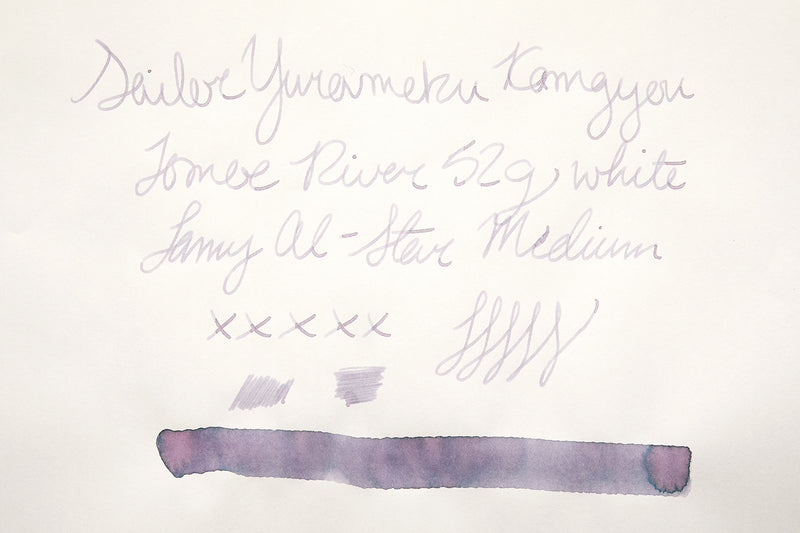 Sailor Yurameku Kamgyou
Tomoe River 52g, white
Lamy Al-Star Medium
x x x x x